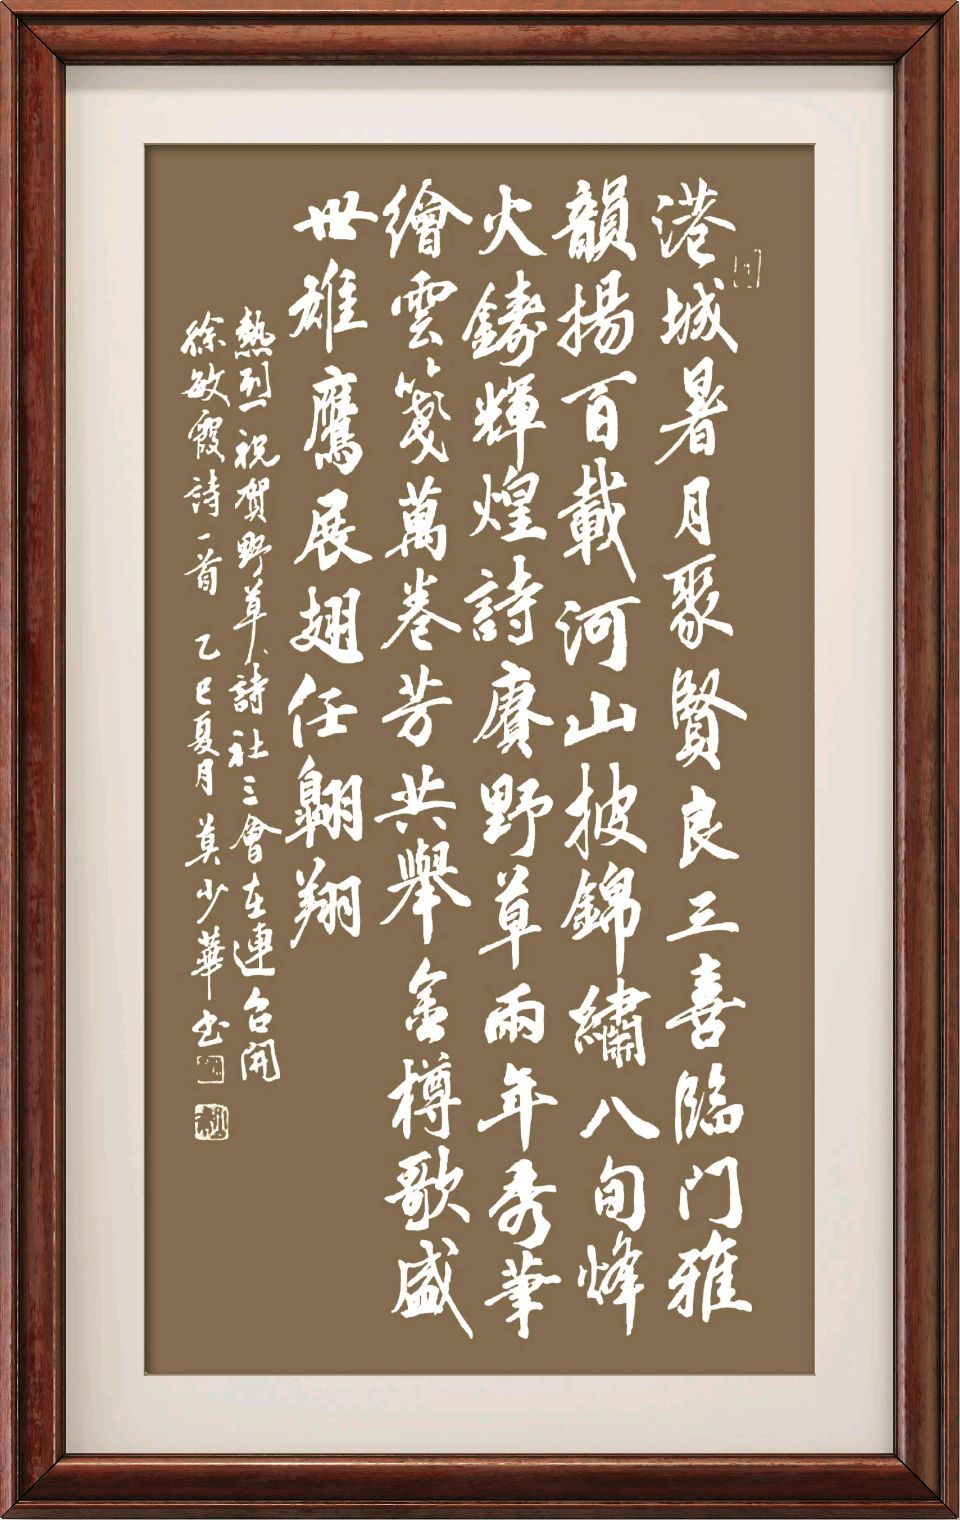 港城暑月聚賢良三喜臨门雅
韻揚百載河山披錦繡八旬烽
火鑄輝煌詩賡野草兩年秀筆
繪雲箋萬卷芳共舉金樽歌盛
世雄鷹展翅任翺翔
熱烈祝贺野草詩社三會在連召開
徐敏霞詩一首 乙巳夏月 莫少華书